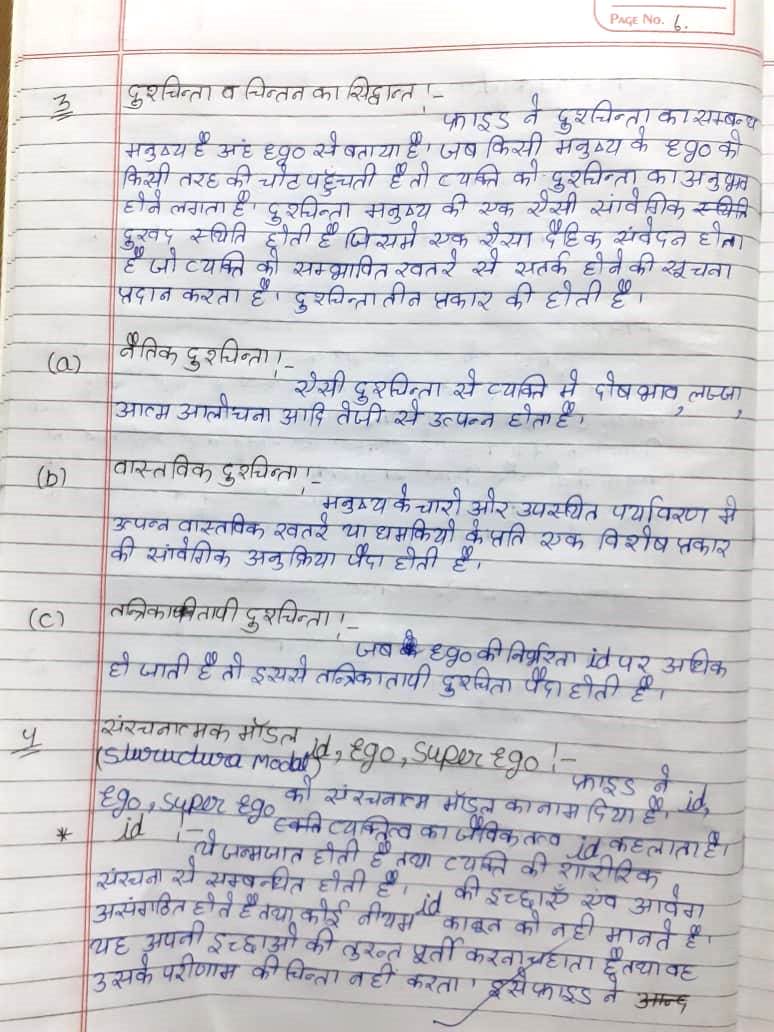 PAGE No. 6.
3 दुश्चिन्ता व चिन्तन का सिद्वान्त !-
फ्राइड ने दुश्चिन्ता का सम्बन्ध
मनुष्य है अहं Ego से बताया है। जब किसी मनुष्य के Ego को
किसी तरह की चोट पहुँचती है तो व्यक्ति को दुश्चिन्ता का अनुभव
होने लगता है। दुश्चिन्ता मनुष्य की एक ऐसी सांवेगिक स्थिति
दुखद स्थिति होती है जिसमे एक ऐसा दैहिक संवेदन होता
है जो व्यक्ति को सम्भावित खतरे से सतर्क होने की सूचना
प्रदान करता है। दुश्चिन्ता तीन प्रकार की होती है।
(a) नैतिक दुश्चिन्ता !-
ऐसी दुश्चिन्ता से व्यक्ति मे दोष भाव, लज्जा,
आत्म आलोचना आदि तेजी से उत्पन्न होता है।
(b) वास्तविक दुश्चिन्ता !-
मनुष्य के चारो और उपस्थित पर्यावरण मे
उत्पन्न वास्तविक खतरे या धमकियो के प्रति एक विशेष प्रकार
की सांवेगिक अनुक्रिया पैदा होती है।
(c) दुश्चिन्ता !-
जब Ego की निर्भरता id पर अधिक
हो जाती है तो इससे तन्त्रिकातापी दुश्चिता पैदा होती है।
4 संरचनात्मक मॉडल
id, Ego, Super Ego !-
फ्राइड ने id,
Ego, Super Ego को संरचनात्म मॉडल का नाम दिया है।
* id !- व्यक्तित्व का जैविक तत्व id कहलाता है।
ये जन्मजात होती है तथा व्यक्ति की शारीरिक
संरचना से सम्बन्धित होती है। id की इच्छाएँ एंव आवेग
असंगठित होते है तथा कोई नीयम कानून को नही मानते है।
यह अपनी इच्छाओ की तुरन्त पूर्ती करना चहाता है तथा वह
उसके परीणाम की चिन्ता नही करता। इसे फ्राइड ने